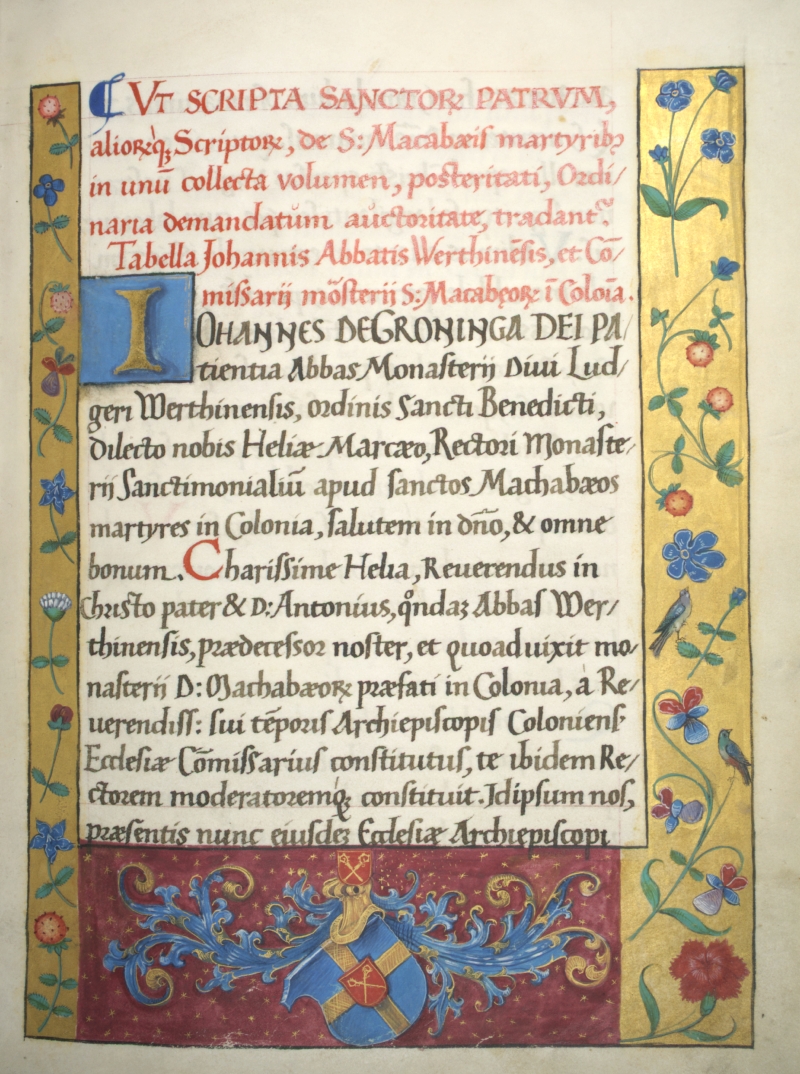 Vt SCRIPTA SANCTORꝝ PATRVM,
alioꝝq̃ꝫ Scriptoꝝ, de S: Macabæis martyribꝫ
in unū collecta volumen, posteritati, Ordi/
naria demandatum auctoritate, tradant᷑.
Tabella Johannis Abbatis Werthinēsis, et Cō/
missarij mõsterij S: Macabęoꝝ ī Coloīa.
IOHANNES DE GRONINGA DEI PA/
tientia Abbas Monasterij Diui Lud/
geri Werthinensis, ordinis Sancti Benedicti,
dilecto nobis Heliæ Marcæo, Rectori Monaste/
rij Sanctimonialiū apud sanctos Machabæos
martyres in Colonia, salutem in dn̄o, & omne
bonum. Charissime Helia, Reuerendus in
Christo pater & D: Antonius, qn̄daꝫ Abbas Wer/
thinensis, prædecessor noster, et quoad uixit mo/
nasterij D: Machabæoꝝ præfati in Colonia, à Re/
uerendiss: sui tēporis Archiepiscopis Coloniens̄
Ecclesiæ Cōmissarius constitutus, te ibidem Re/
ctorem moderatoremq̃ꝫ constituit. Idipsum nos,
præsentis nunc eiusdeꝫ Ecclesiæ Archiepiscopi